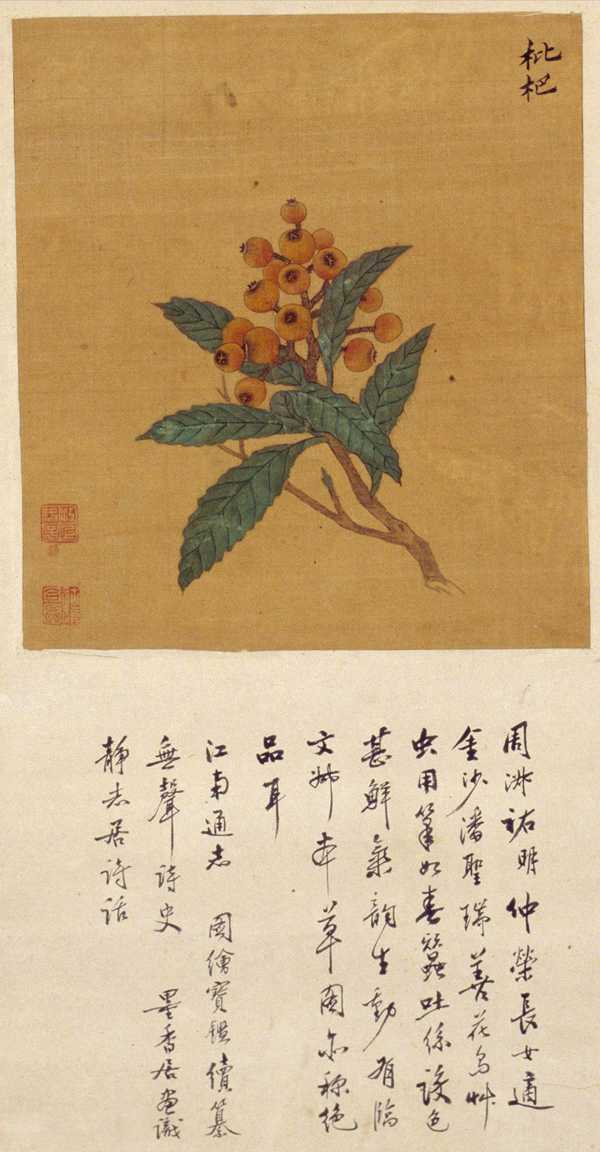 枇杷
周淑祐明仲榮長女適
金沙潘聖瑞善花鳥艸
虫用筆如春蠶吐絲設色
甚鮮氣韵生動有臨
文俶本草圖亦称絕
品耳
江南通志 圖繪寶鑑續纂
無聲詩史 墨香居畫識
靜志居詩話